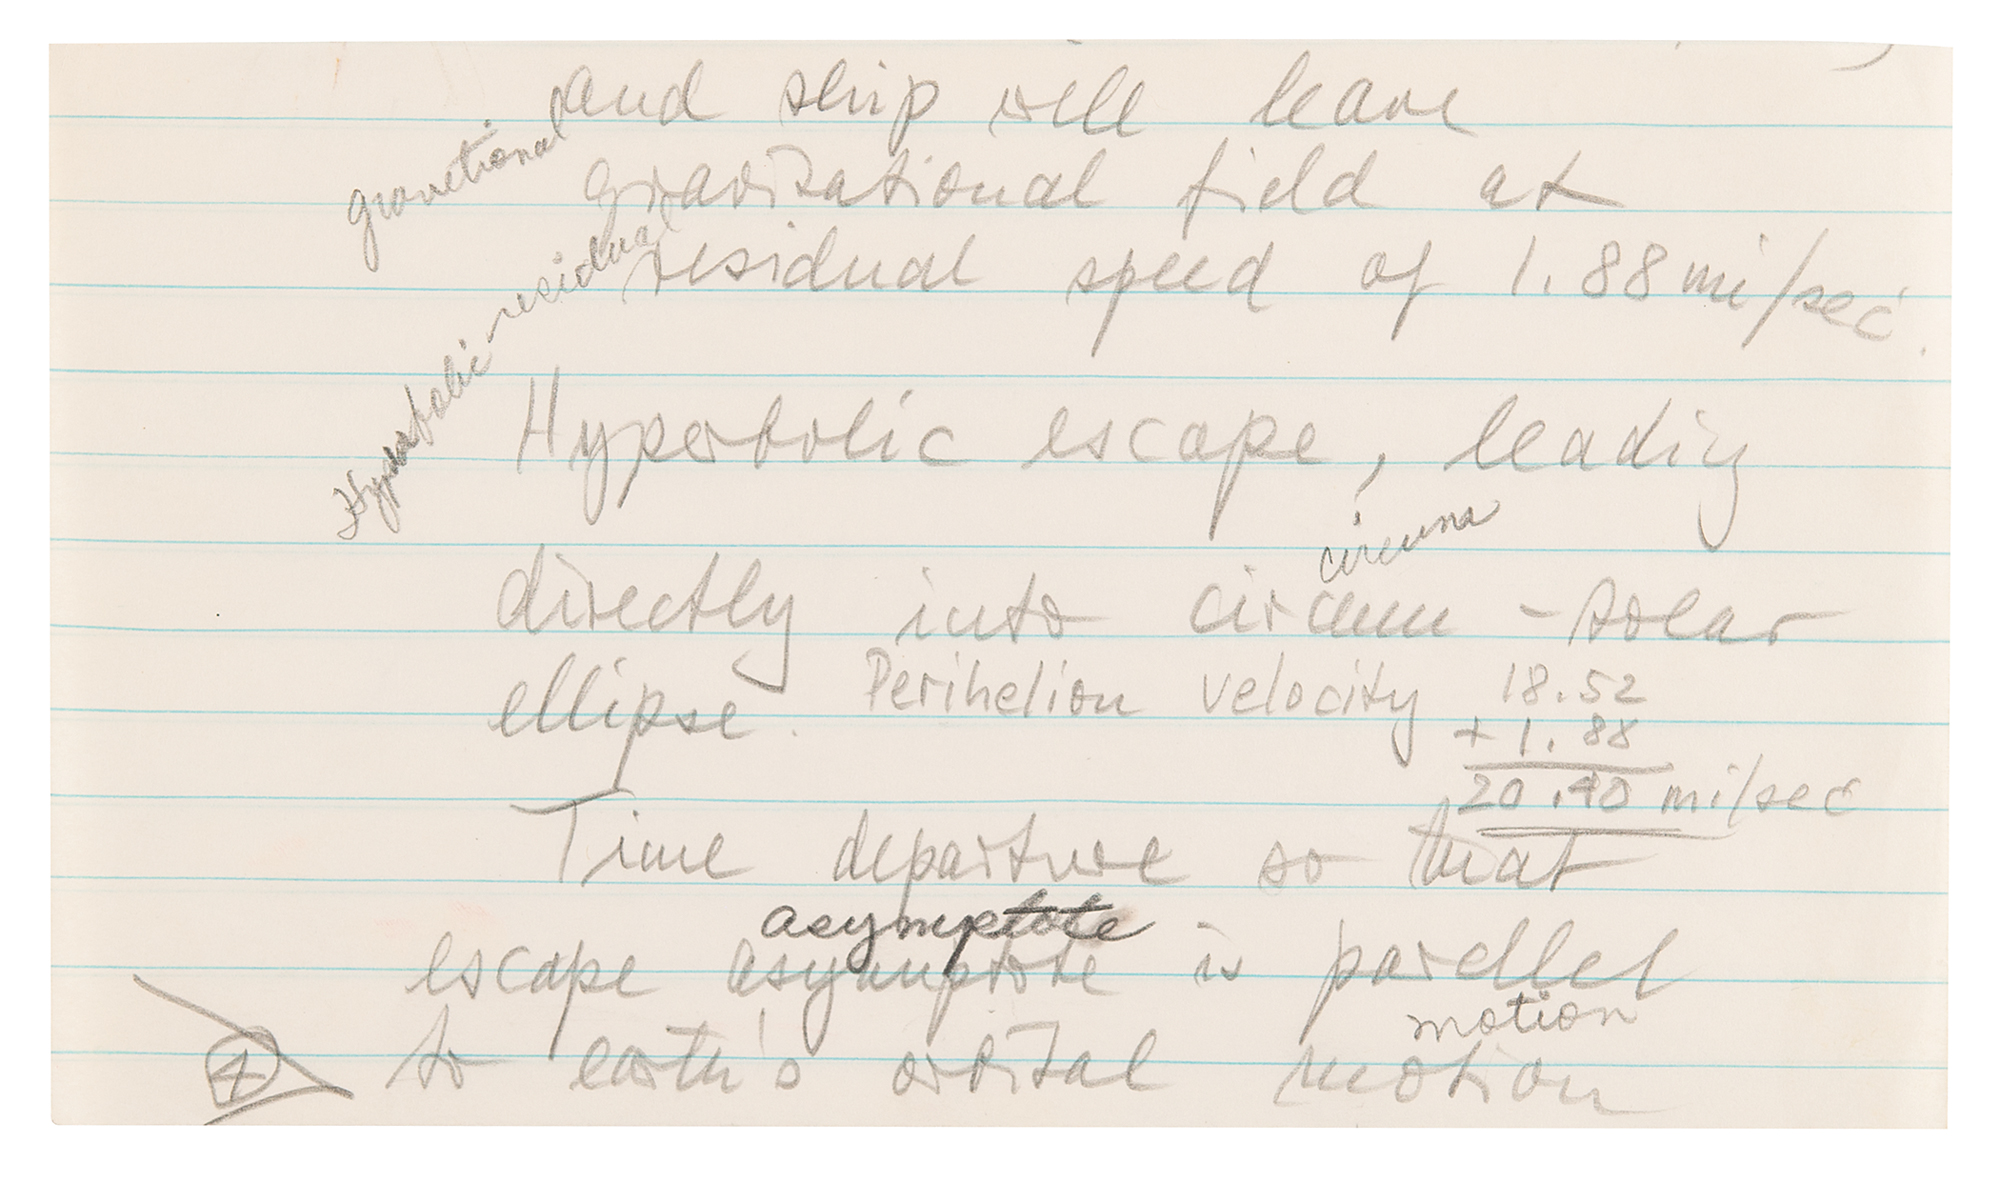 and ship will leave
gravetional
gravitational field at
residual
residual speed of 1.88 mi/sec.
Hyperbolic
Hyperbolic escape, leading
circum
directly into circum - solar
ellipse. Perihelion velocity 18.52
+ 1.88
20.40 mi/sec
Time departure so that
asymptote
escape asymptote is parallel
motion
4 to earth's orbital motion